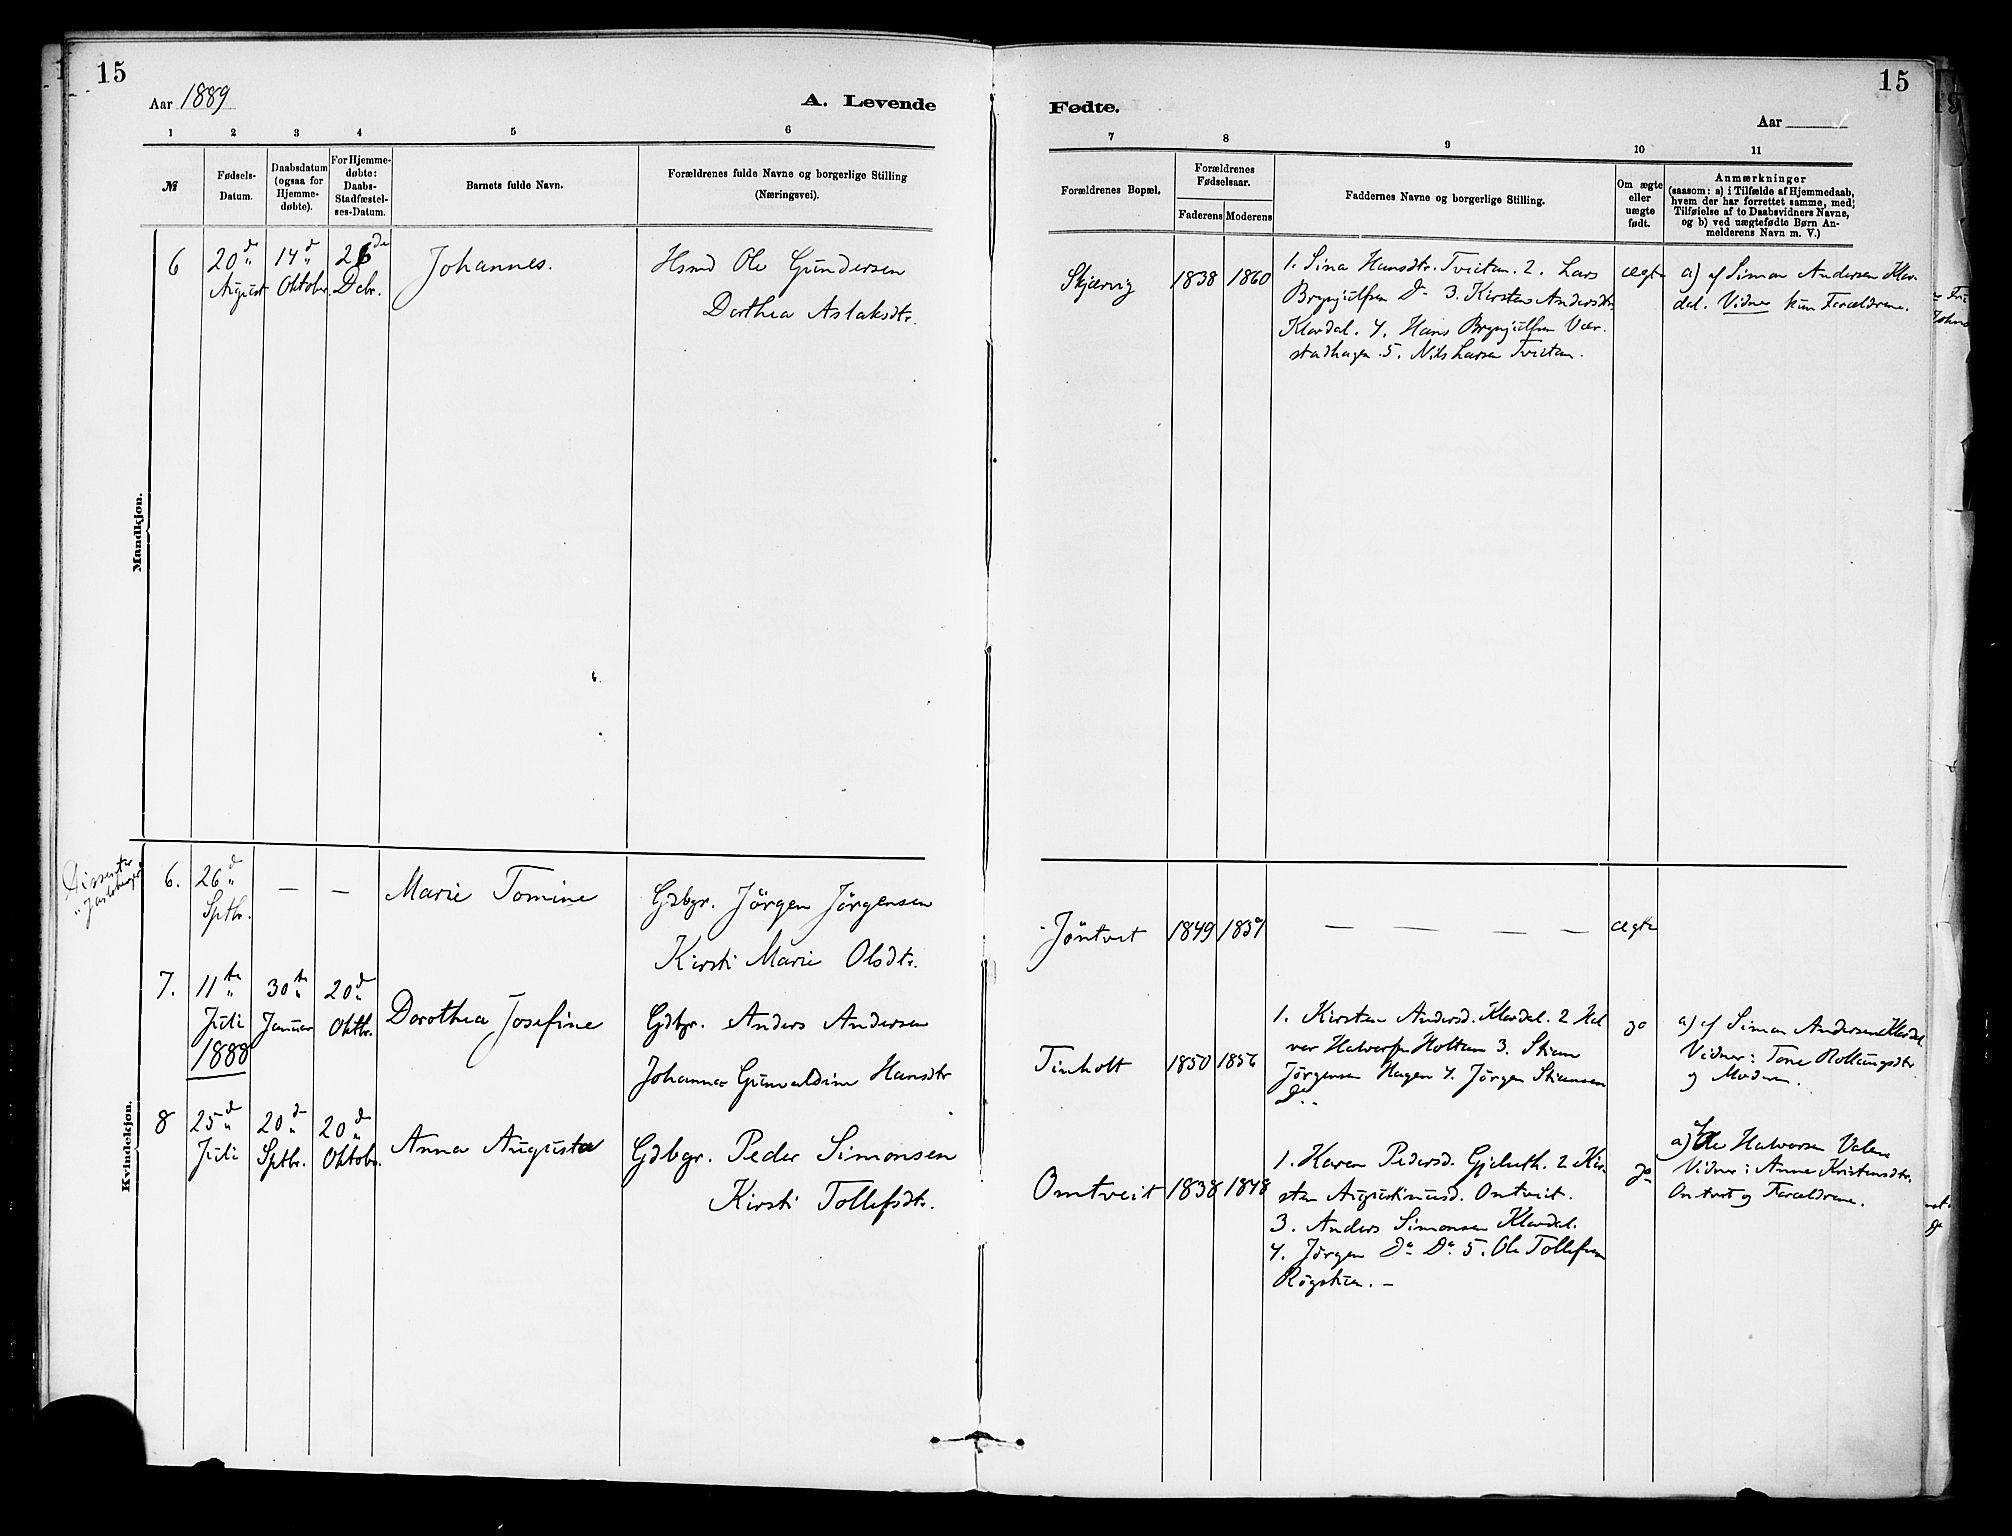 15
15
Aar 1889
A. Levende
Fødte.
Aar
1
2
3
4
5
6
7
8
9
10
11
№
Fødsels-
Datum.
Daabsdatum
(ogsaa for
Hjemme-
døbte).
For Hjemme-
døbte:
Daabs-
Stadfæstel-
ses-Datum.
Barnets fulde Navn.
Forældrenes fulde Navne og borgerlige Stilling
(Næringsvei).
Forældrenes Bopæl.
Forældrenes
Fødselsaar.
Faderens
Moderens
Faddernes Navne og borgerlige Stilling.
Om ægte
eller
uægte
født.
Anmærkninger
(saasom: a) i Tilfælde af Hjemmedaab,
hvem der har forrettet samme, med
Tilføielse af to Daabsvidners Navne,
og b) ved uægtefødte Børn An-
melderens Navn m. V.)
Mandkjøn.
6
20de
August
14de
Oktobr.
26de
Debr.
Johannes.
Hsmd Ole Gundersen
Dorthea Aslaksdtr.
Skjærvig
1838
1860
1. Sina Hansdtr. Tveitan. 2. Lars
Brynjulfsen Do 3. Kirsten Andersdtr.
Klevdal. 4. Hans Brynjulfsen Vær-
stadhagen 5. Nils Larsen Tveitan.
ægte
a) af Simon Andersen Klev-
dal. Vidner kun Forældrene.
Kvindekjøn.
Dissenter
6.
26de
Sptbr.
—
—
Marie Tomine
Gdbgr. Jörgen Jörgensen
Kirsti Marie Olsdtr.
Jöntveit
1849
1857
— — — — —
ægte
7.
11te
Juli
1888
30te
Januar
20de
Oktbr.
Dorothea Josefine
Gdbgr. Anders Andersen
Johanne Gunvaldine Hansdtr
Timholt
1850
1856
1. Kirsten Andersd. Klevdal. 2 Hal-
vor Halvorsen Holtan 3. Stian
Jörgensen Hagen 4. Jörgen Stiansen
Do.
do
a) af Simon Andersen Klevdal
Vidner: Tone Rollaugsdtr
og Moderen.
8
25de
Juli
20de
Sptbr.
20de
Oktobr.
Anna Augusta
Gdbgr. Peder Simonsen
Kirsti Tollefsdtr.
Omtveit
1838
1848
1. Karen Pedersd. Gjeluth. 2 Kir-
sten Augustinusd. Omtveit.
3. Anders Simonsen Klevdal.
4. Jörgen Do Do 5. Ole Tollefsen
Rögstien. —
do
a) af Ole Halvorsen Valen
Vidner: Anne Kristensdtr.
Omtveit og Forældrene.